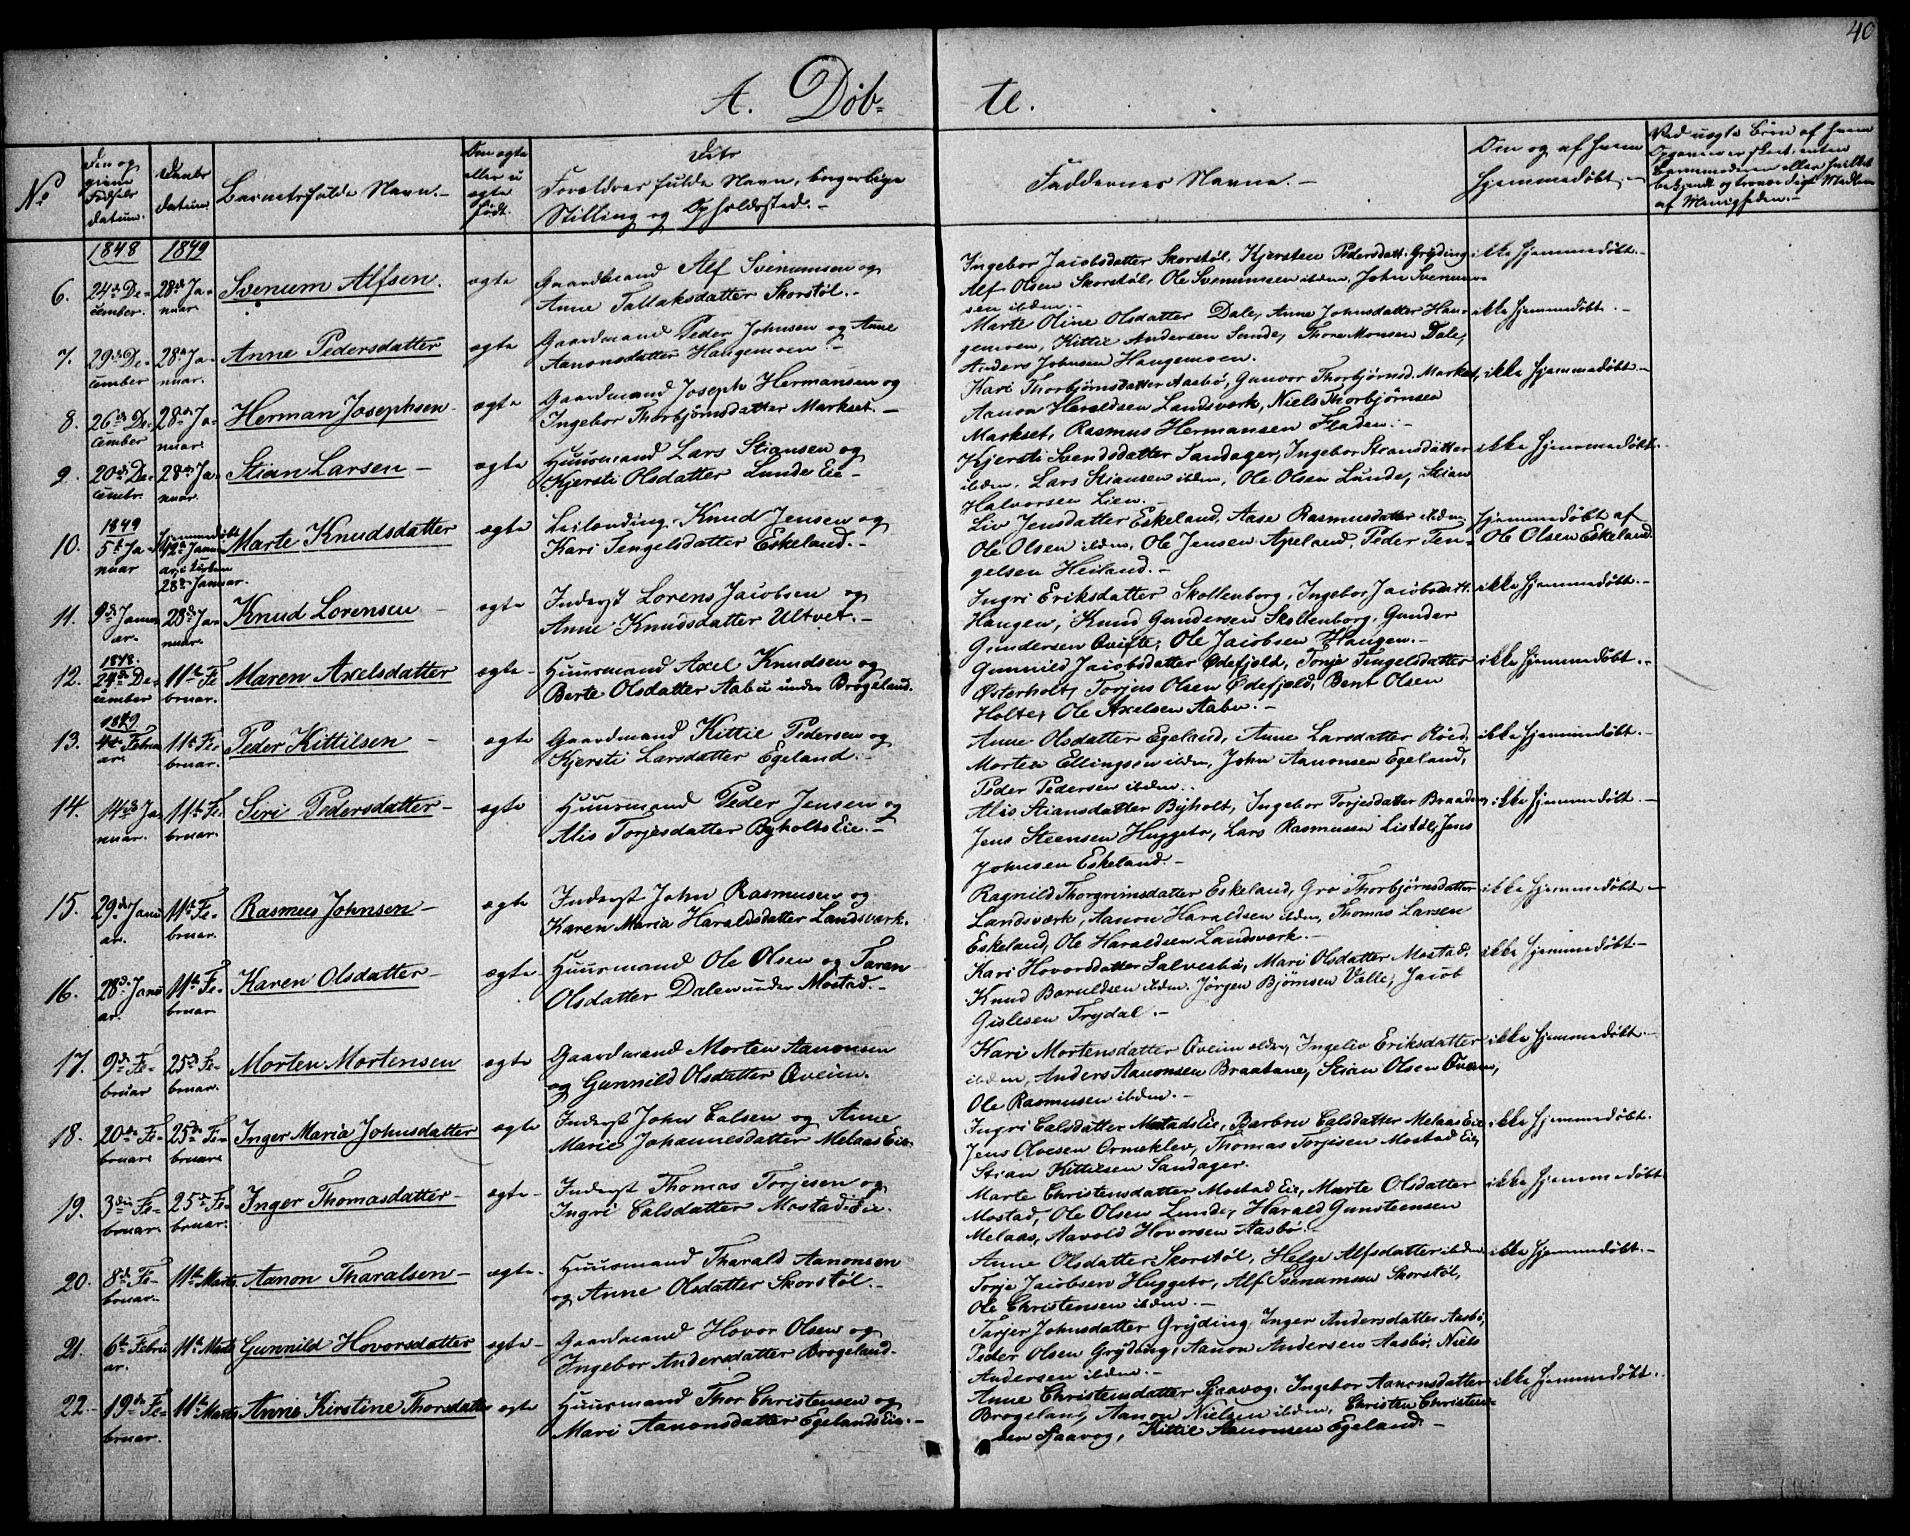 40
A. Døb-
te.
No
Den og
datum.
datum
Barnets fulde Navn.-
Den ægte
eller u
ægte
født.
Forældres fulde Navn, borgerlige
Stilling og Opholdssted.-
Faddernes Navne.-
Om og af hvem
hjemmedøbt.
af Menigheden.-
1848 1849
6. 24de De-
cember. 28de Ja-
nuar Svenum Alfsen. ægte Gaardmand Alf Svenumsen og
Anne Tallaksdatter Skorstøl.-
Ingebor Jacobsdatter Skorstøl, Kjersten Pedersdatt. Gryding
Alf Olsen Skorstøl, Ole Svenumsen ibdm, John Svenum-
sen ibdm.-
ikke hjemmedøbt.-
7. 29de De-
cember 28de Ja-
nuar. Anne Pedersdatter ægte Gaardmand Peder Johnsen og Anne
Aanonsdatter Haugemoen.-
Marte Oline Olsdatter Dale, Anne Johnsdatter Hau-
gemoen, Kittil Andersen Lunde, Thore Monsen Dale,
Anders Johnsen Haugemoen.
ikke hjemmedøbt.-
8. 26de De-
cember 28de Ja-
nuar. Herman Josephsen ægte Gaardmand Joseph Hermansen og
Ingebor Thorbjørnsdatter Markset.-
Kari Thorbjørnsdatter Aasbø, Gunvor Thorbjørnsd. Markset,
Aanon Haraldsen Landsverk, Niels Thorbjørnsen
Markset, Rasmus Hermansen Fladen.-
ikke hjemmedøbt.-
9. 20de De-
cembr. 28de Ja-
nuar. Stian Larsen- ægte Huusmand Lars Stiansen og
Kjersti Olsdatter Lunde Eie-
Kjersti Svendsdatter Sandager, Ingebor Stiansdatter
ibdm, Lars Stiansen ibdm, Ole Olsen Lunde, Stian
Halvorsen Lien.-
ikke hjemmedøbt.
1849
10. 5te Ja-
nuar Hjemmedøbt
12te Janu
ar, i Kirken
28de Januar. Marte Knudsdatter ægte Leilending Knud Jensen og
Kari Tengelsdatter Eskeland.-
Liv Jensdatter Eskeland, Aase Rasmusdatter ibdm,
Ole Olsen ibdm, Ole Jensen Apeland, Peder Ten-
gelsen Heiland.-
hjemmedøbt af
Ole Olsen Eskeland
11. 9de Janu-
ar. 28de Ja-
nuar. Knud Lorensen ægte Inderst Lorens Jacobsen og
Anne Knudsdatter Ultvet.-
Ingri Eriksdatter Skollenborg, Ingebor Jacobsdatt.
Haugen, Knud Gundersen Skollenborg, Gunder
Gundersen Qvifte, Ole Jacobsen Haugen.-
ikke hjemmedøbt.-
1848.
12. 24de De-
cember 11te Fe
bruar. Maren Axelsdatter ægte- Huusmand Axel Knudsen og
Berte Olsdatter Aabu under Brogeland.
Gunnild Jacobsdatter Ødefjeld, Tonje Tengelsdatter
Østerholt, Torjus Olsen Ødefjeld, Bent Olsen
Holte, Ole Axelsen Aabu.-
ikke hjemmedøbt.-
1849
13. 4de Febru
ar. 11te Fe-
bruar. Peder Kittilsen ægte Gaardmand Kittil Pedersen og
Kjersti Larsdatter Egeland.-
Anne Olsdatter Egeland, Anne Larsdatter Røed,
Morten Ellingsen ibdm, John Aanonsen Egeland,
Peder Pedersen ibdm.
ikke hjemmedøbt.-
14. 14de Ja
nuar. 11te Fe-
bruar. Siri Pedersdatter- ægte Huusmand Peder Jensen og
Alis Torjesdatter Byholts Eie.-
Alis Stiansdatter Byholt, Ingebor Torjesdatter Braaden,
Jens Steensen Huggebo, Lars Rasmusen Listøl, Jens
Johnsen Eskeland.-
ikke hjemmedøbt.-
15. 29de Janu
ar. 11te Fe-
bruar. Rasmus Johnsen- ægte Inderst John Rasmusen og
Karen Maria Haraldsdatter Landsverk.
Ragnild Thorgrimsdatter Eskeland, Gro Thorbjørnsdatter
Landsverk, Aanon Haraldsen ibdm, Thomas Larsen
Eskeland, Ole Haraldsen Landsverk.-
ikke hjemmedøbt-
16. 28de Janu
ar. 11te Fe-
bruar Karen Olsdatter- ægte Huusmand Ole Olsen og Taran
Olsdatter Dalen under Mostad.-
Kari Hovorsdatter Salvesbø, Mari Olsdatter Mostad,
Knud Baruldsen ibdm. Jørgen Bjørnsen Valle, Jacob
Gislesen Frydal.-
ikke hjemmedøbt-
17. 9de Fe-
bruar 25de Fe-
bruar. Morten Mortensen ægte Gaardmand Morten Aanonsen
og Gunnild Olsdatter Qveim.
Kari Mortensdatter Qveim, Ingeliv Eriksdatter
ibdm, Anders Aanonsen Braatane, Stian Olsen Qveim,
Ole Rasmusen ibdm.-
ikke hjemmedøbt.-
18. 20de Fe-
bruar 25de Fe-
bruar. Inger Maria Johnsdatter ægte Inderst John Calsen og Anne
Marie Johannesdatter Melaas Eie.
Ingri Calsdatter Mostads Eie, Barbru Calsdatter Melaas Eie
Jens Olvesen Ormeklev, Thomas Torjesen Mostad Eie,
Stian Kittilsen Sandager.
ikke hjemmedøbt.
19. 3die Fe-
bruar. 25de Fe-
bruar. Inger Thomasdatter- ægte- Inderst Thomas Torjesen og
Ingri Calsdatter Mostad-Eie.
Marte Christensdatter Mostad Eie, Marte Olsdatter
Mostad, Ole Olsen Lunde, Harald Gunsteensen
Melaas, Aavold Hovorsen Aasbø.-
ikke hjemmedøbt
20. 8de Fe-
bruar. 11te Marts Aanon Tharalsen- ægte- Huusmand Tharald Aanonsen
og Anne Olsdatter Skorstøl.-
Anne Olsdatter Skorstøl, Helge Alfsdatter ibdm
Torje Jacobsen Huggebo, Alf Svenumsen Skorstøl,
Ole Christensen ibdm.-
ikke hjemmedøbt.-
21. 6te Febru
ar. 11te Marts Gunnild Hovorsdatter ægte- Gaardmand Hovor Olsen og
Ingebor Andersdatter Brogeland.
Tarjer Johnsdatter Gryding, Inger Andersdatter Aasbø,
Peder Olsen Gryding, Aanon Andersen Aasbø, Niels
Andersen ibdm.-
ikke hjemmedøbt.
22- 19de Fe-
bruar. 11te Marts Anne Kirstine Thorsdatter ægte Huusmand Thor Christensen og
Mari Aanonsdatter Egelands Eie.-
Anne Christensdatter Sjaavog, Ingebor Aanonsdatter
Brogeland, Aanon Nielsen ibdm, Christen Christen-
sen Sjaavog, Kittil Aanonsen Egeland.-
ikke hjemmedøbt.